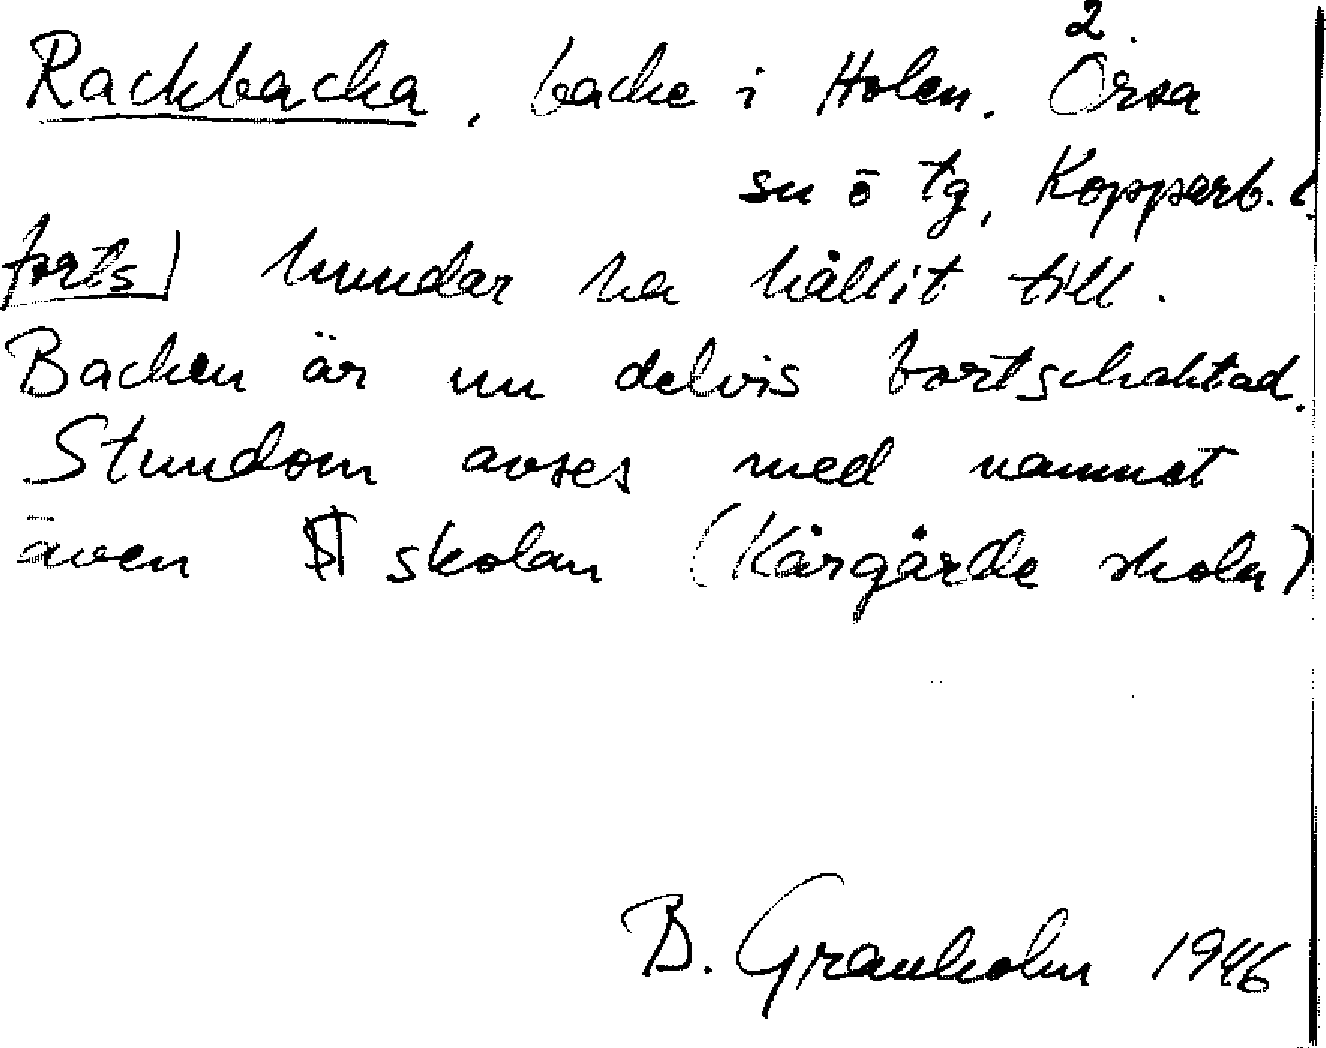 2.
Rackbacka, backe i Holen. Orsa
sn ö tg, Kopparb. l.
forts] hundar ha hållit till.
Backen är nu delvis bortschaktad.
Stundom avses med namnet
även skolan (Kårgärde skola)
B. Granholm 1946